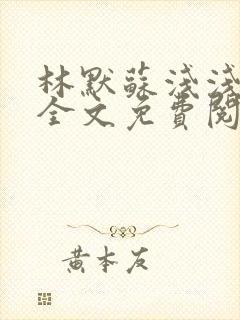 林默蘇淺淺
全文免費閱
黃本友